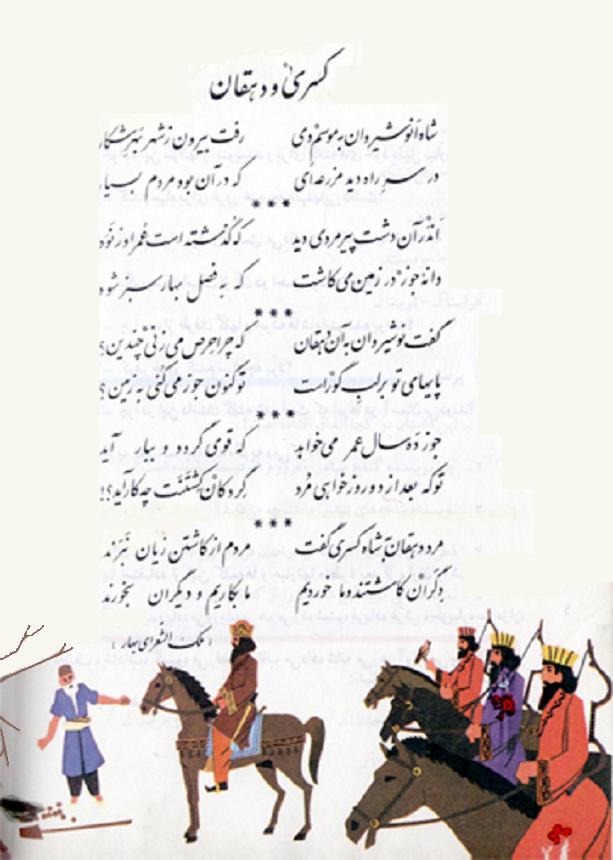 کسریٰ و دهقان
شاه انوشیروان به موسم دی رفت بیرون ز شهر بهر شکار
در سر راه دید مزرعه‌ای که در آن بود مردم بسیار
***
اندر آن دشت پیرمردی دید که گذشته است عمر او ز نود
دانهٔ جوز در زمین می‌کاشت که به فصل بهار سبز شود
***
گفت نوشیروان به آن دهقان که چرا حرص می‌زنی چندین؟
پایهای تو بر لب گور است تو کنون جوز می‌کنی به زمین؟
***
جوز ده سال عمر می‌خواهد که قوی گردد و ببار آید
تو که بعد از دو روز خواهی مرد گردکان کشتنت چه کار آید؟!
***
مرد دهقان به شاه کسری گفت مردم از کاشتن زیان نبرند
دگران کاشتند و ما خوردیم ما بکاریم و دیگران بخورند
(ملک الشعرای بهار)